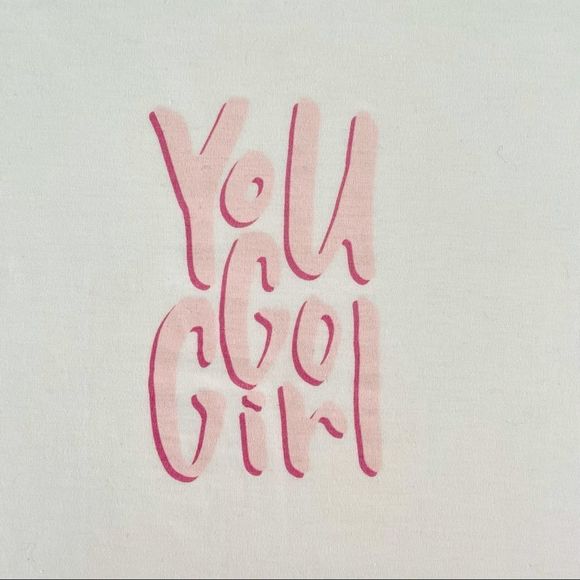 You
Go
Girl